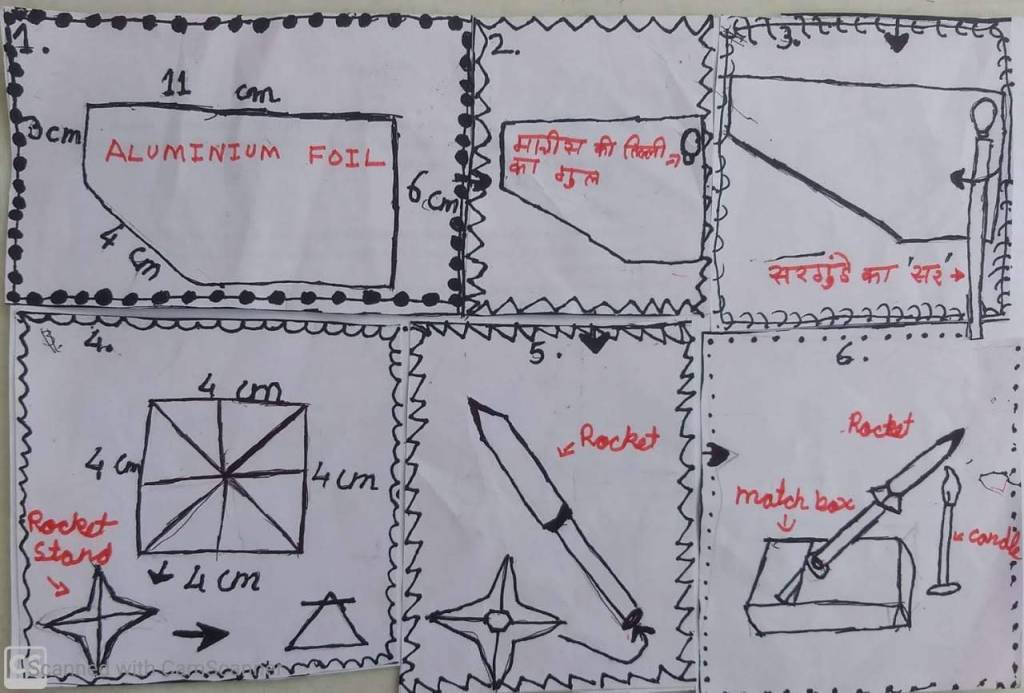 1.
11 cm
3 cm
ALUMINIUM FOIL
6 cm
4 cm
2.
माचीस की तिल्ली
का गुल
3.
सरगुंडे का 'सर'
4.
4 cm
4 cm
4 cm
4 cm
Rocket
Stand
5.
Rocket
6.
Rocket
match box
candle
Scanned with CamScanner